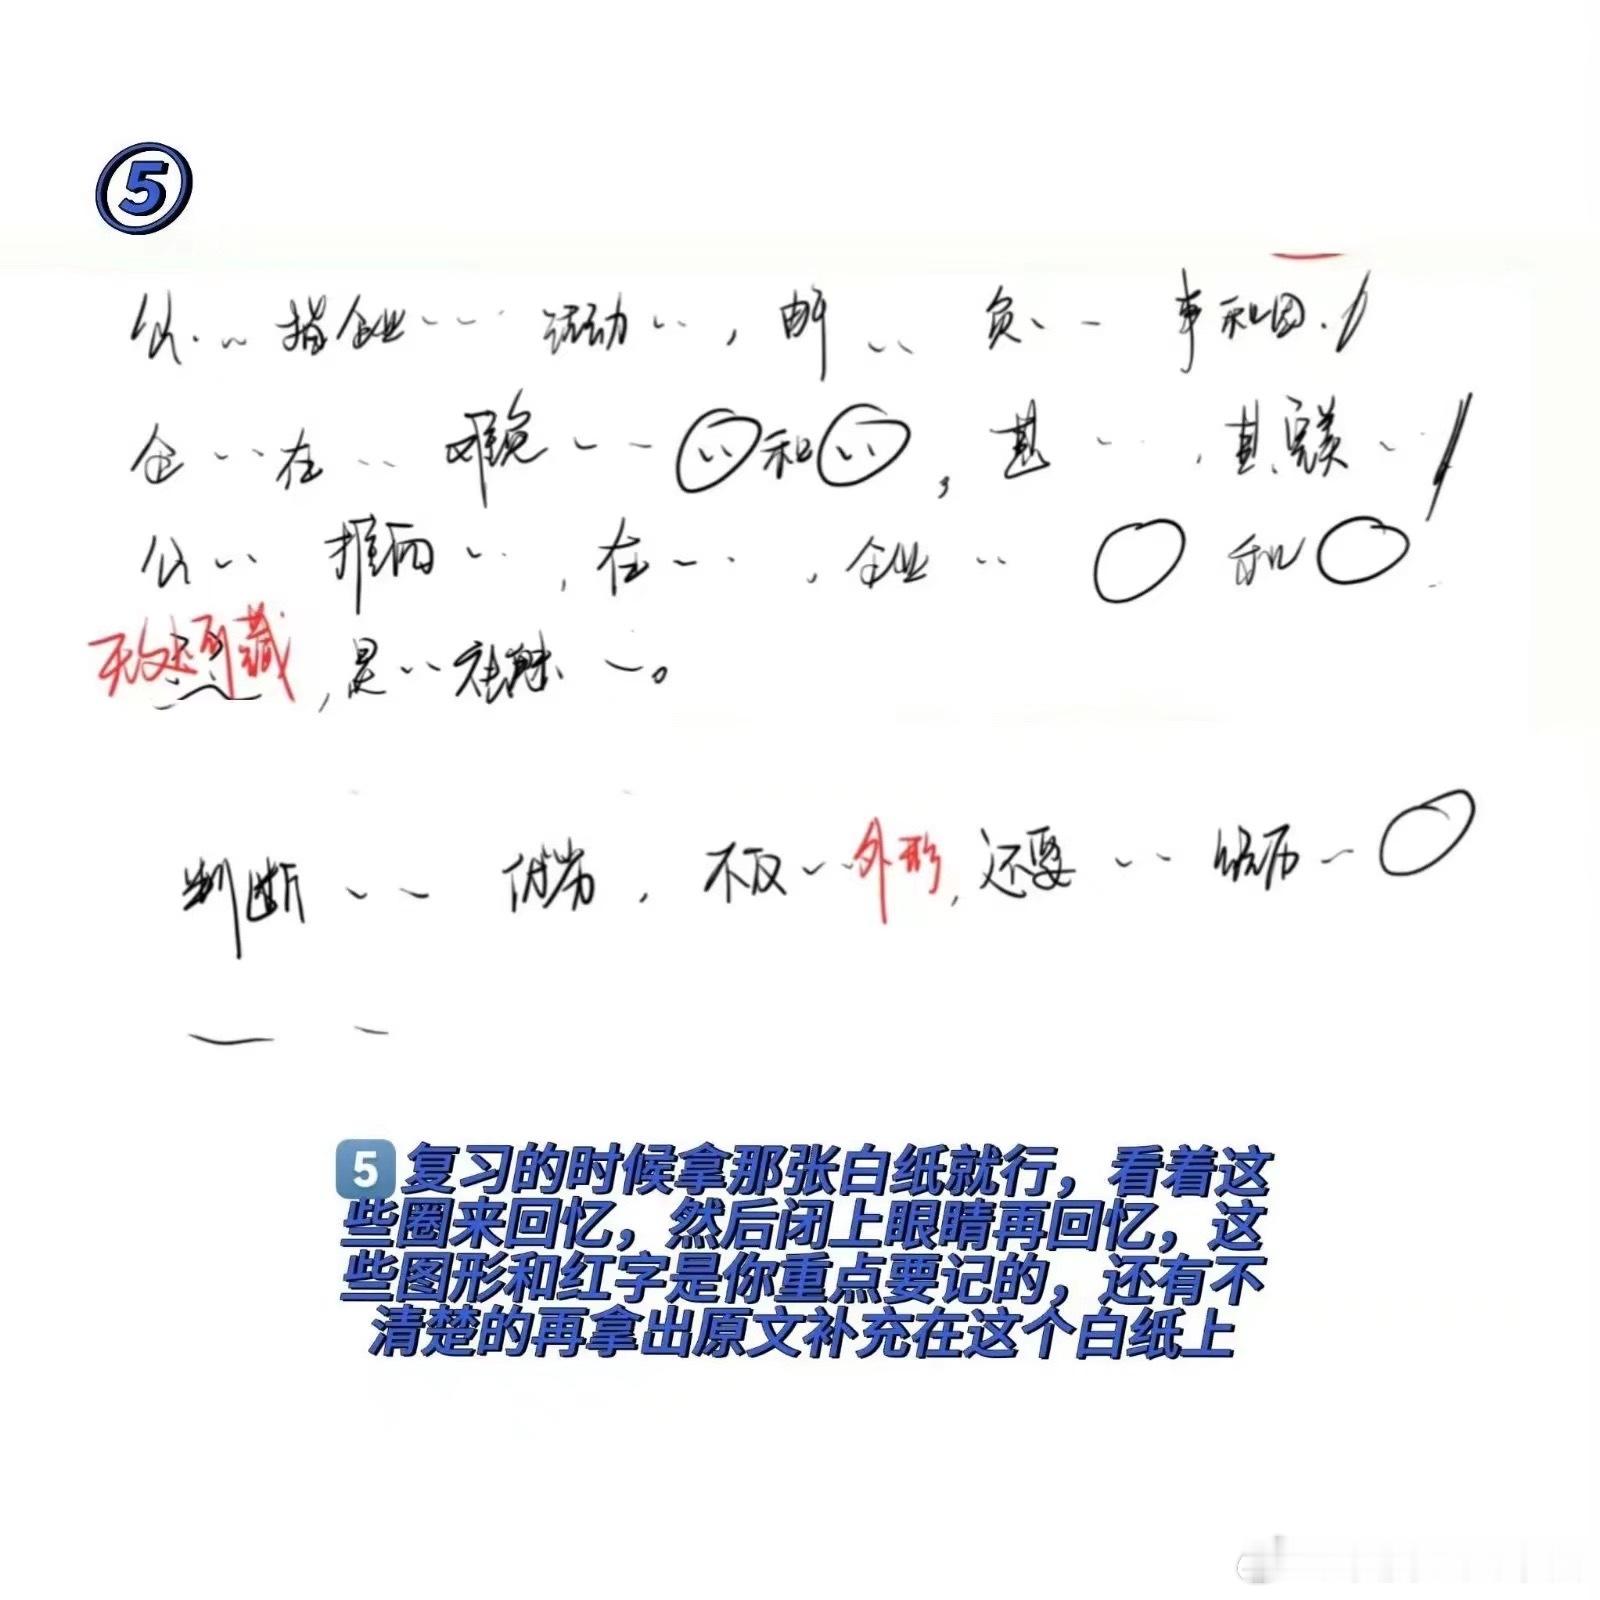 5
公 指企业 活动 ，由 负 事和因
企 在 难免 和 ，甚 ，其完美
公 推而 ，在 ，企业 和
无处可藏，是 在触 。
判断 优劣，不仅 外形，还要 经历
5 复习的时候拿那张白纸就行，看着这
些圈来回忆，然后闭上眼睛再回忆，这
些图形和红字是你重点要记的，还有不
清楚的再拿出原文补充在这个白纸上